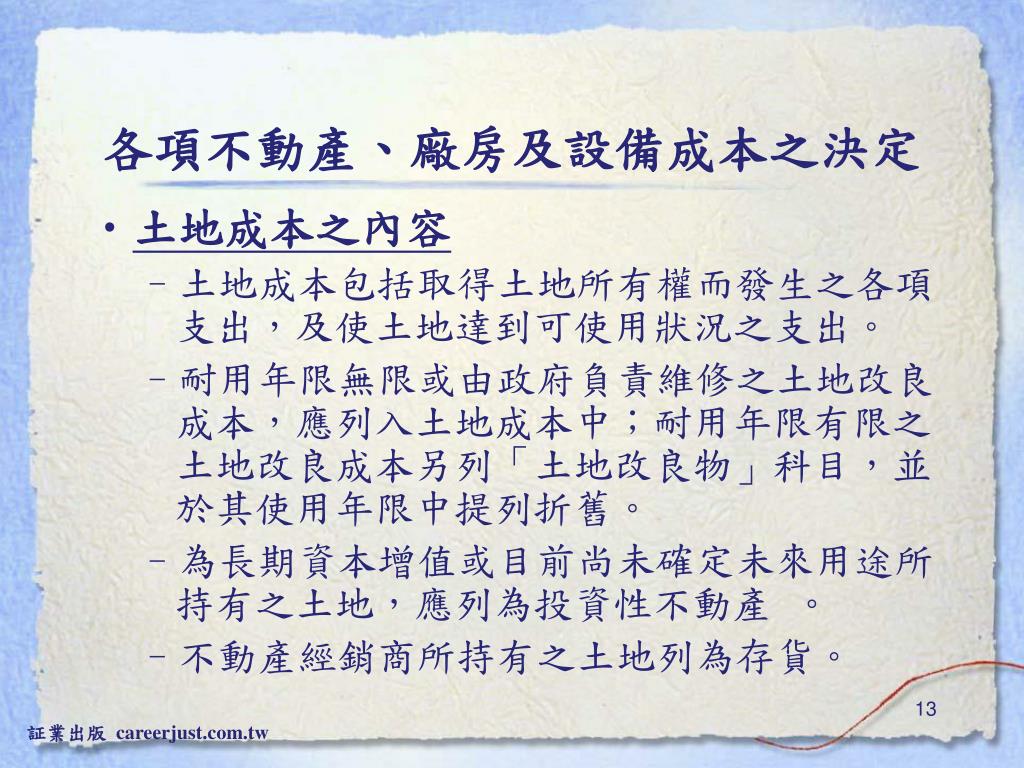 各項不動產、廠房及設備成本之決定
• 土地成本之內容
– 土地成本包括取得土地所有權而發生之各項
支出，及使土地達到可使用狀況之支出。
– 耐用年限無限或由政府負責維修之土地改良
成本，應列入土地成本中；耐用年限有限之
土地改良成本另列「土地改良物」科目，並
於其使用年限中提列折舊。
– 為長期資本增值或目前尚未確定未來用途所
持有之土地，應列為投資性不動產 。
– 不動產經銷商所持有之土地列為存貨。
13
証業出版 careerjust.com.tw